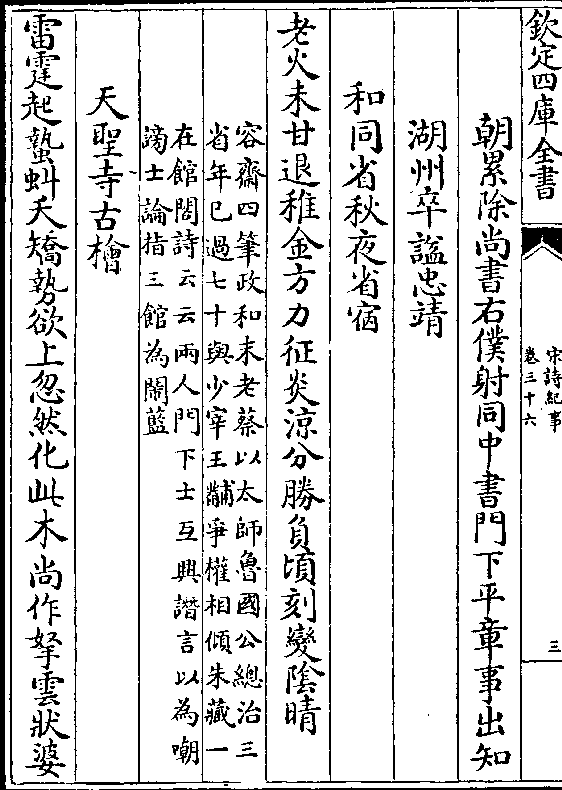 欽定四庫全書
宋詩紀事
卷三十六
三
朝累除尚書右僕射同中書門下平章事出知
湖州卒諡忠靖
和同省秋夜省宿
老火未甘退稚金方力征炎涼分勝負頃刻變隂晴
容齋四筆政和末老蔡以太師魯國公總治三
省年已過七十與少宰王黼爭權相傾朱藏一
在館閣詩云云兩人門下士互興譖言以為嘲
謗士論指三館為閙藍
天聖寺古檜
雷霆起蟄虯夭矯勢欲上忽然化此木尚作拏雲狀婆